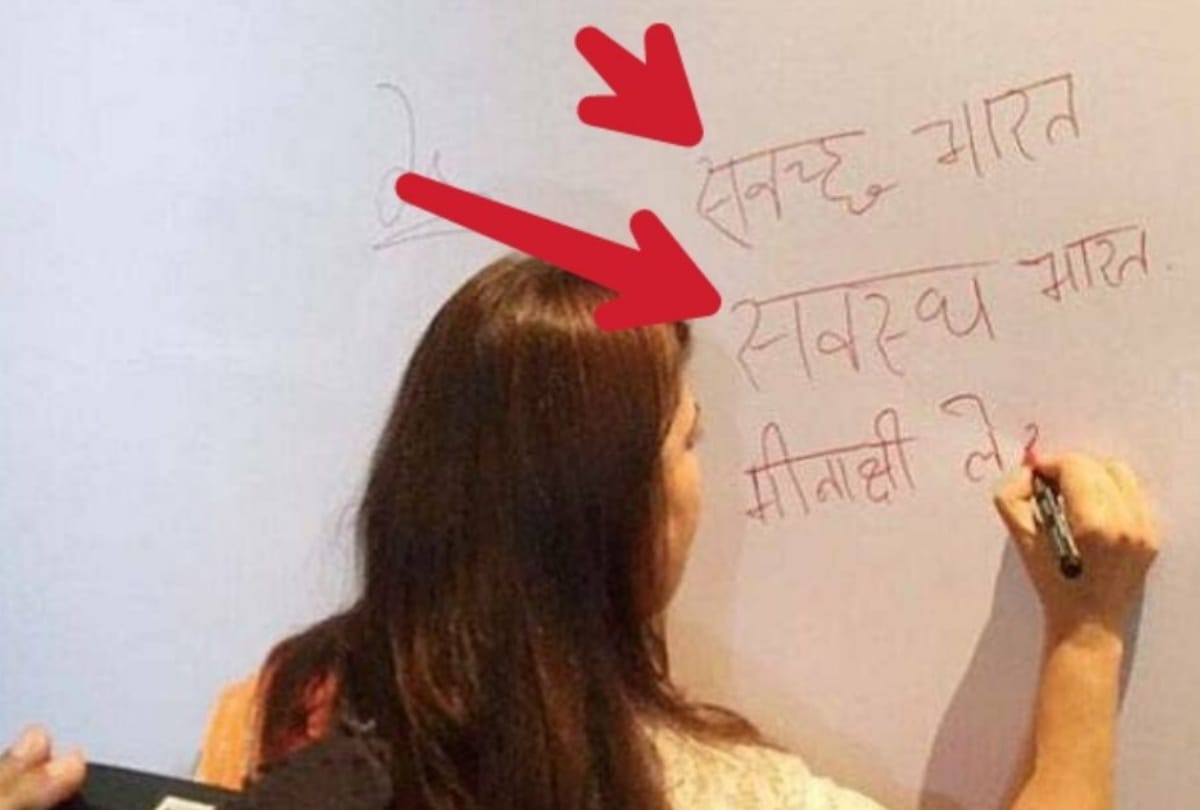 सवच्छ भारत
सवस्थ भारत
मीनाक्षी ले